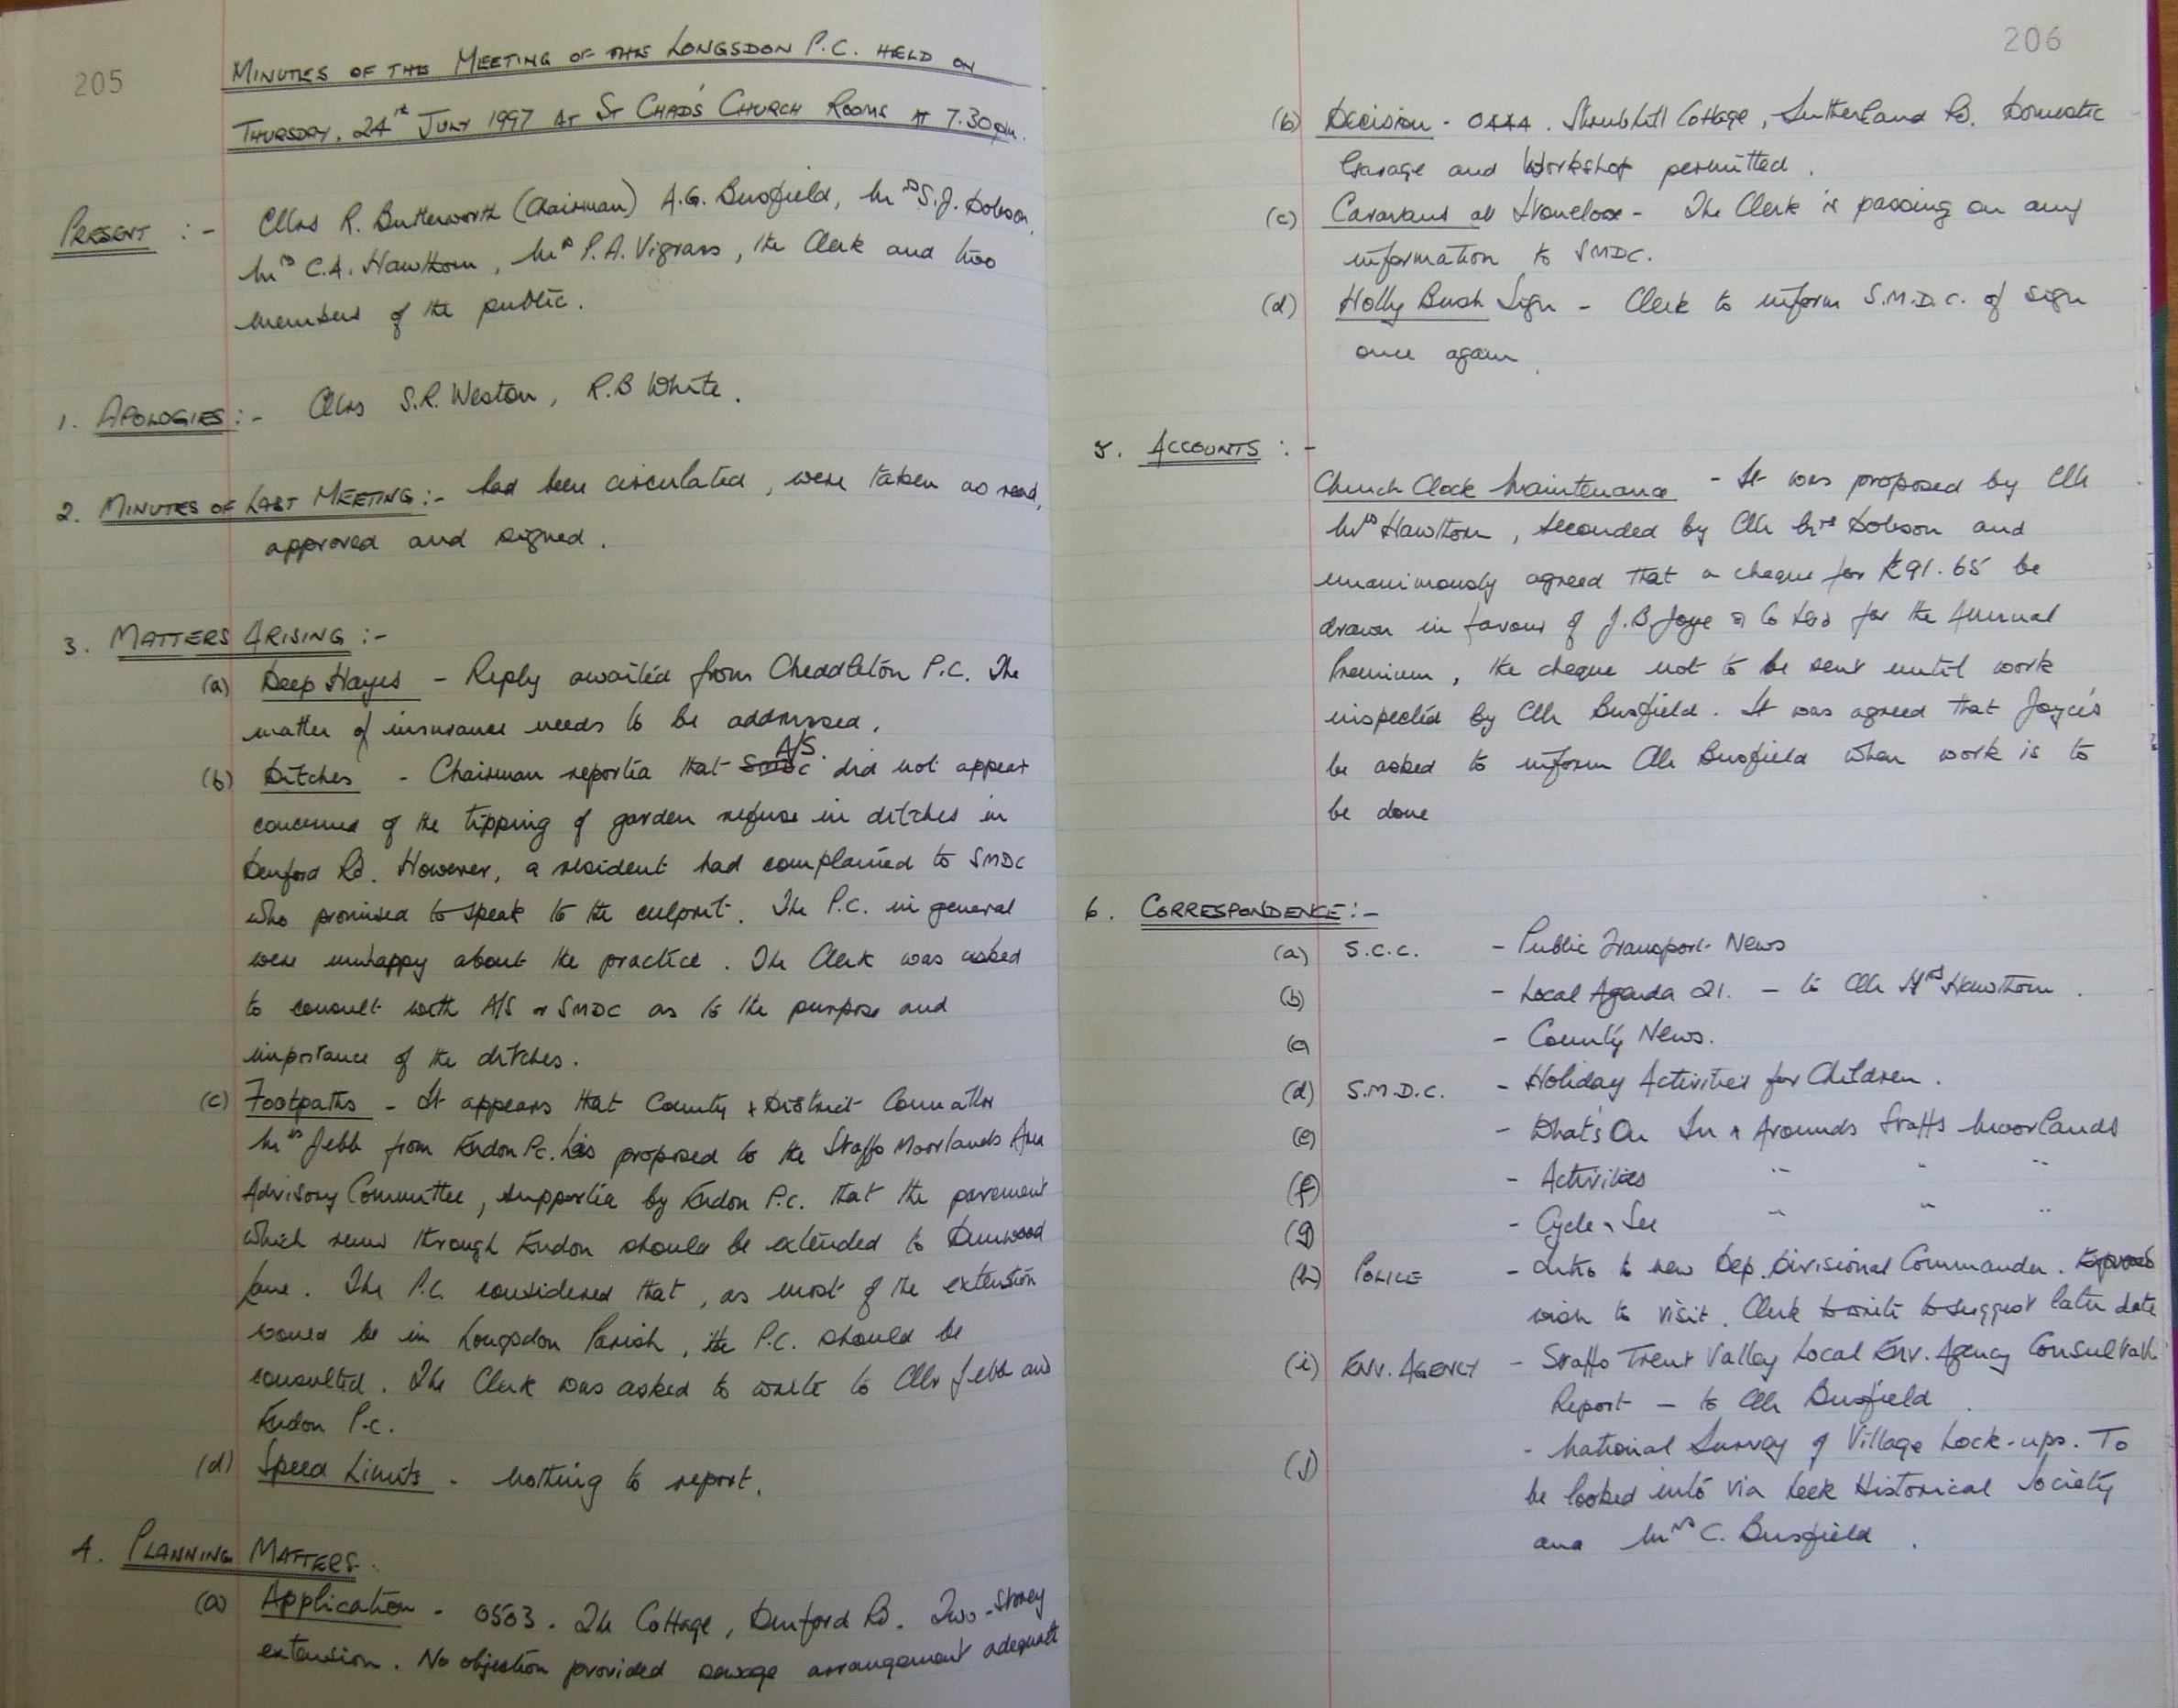 205
MINUTES OF THE MEETING OF THE LONGSDON P.C. HELD ON
THURSDAY, 24th JULY 1997 AT ST CHAD'S CHURCH ROOMS AT 7.30pm.
PRESENT :- Cllrs R. Butterworth (Chairman) A.G. Busfield, Mrs S.J. Dobson,
Mrs C.A. Hawthorn, Mrs P.A. Vigrass, the Clerk and two
members of the public.
1. APOLOGIES :- Cllrs S.R. Weston, R.B White.
2. MINUTES OF LAST MEETING :- had been circulated, were taken as read,
approved and signed.
3. MATTERS ARISING :-
(a) Deep Hayes - Reply awaited from Cheddleton P.C. The
matter of insurance needs to be addressed.
(b) Ditches - Chairman reported that SMDC A/S did not appear
concerned of the tipping of garden refuse in ditches in
Denford Rd. However, a resident had complained to SMDC
who promised to speak to the culprit. The P.C. in general
were unhappy about the practice. The Clerk was asked
to consult with A/S or SMDC as to the purpose and
importance of the ditches.
(c) Footpaths - It appears that County & District Councillor
Mrs Jebb from Endon P.C. has proposed to the Staffs Moorlands Area
Advisory Committee, supported by Endon P.C. that the pavement
which runs through Endon should be extended to Dunwood
Lane. The P.C. considered that, as most of the extension
would be in Longsdon Parish, the P.C. should be
consulted. The Clerk was asked to write to Cllr Jebb and
Endon P.C.
(d) Speed Limits - Nothing to report.
4. PLANNING MATTERS.
(a) Application - 0503. The Cottage, Denford Rd. Two-storey
extension. No objection provided sewage arrangement adequate
206
(b) Decision - Shrubhill Cottage, Sutherland Rd. Domestic
Garage and Workshop permitted.
(c) Caravans at Stonelow - The Clerk is passing on any
information to SMDC.
(d) Holly Bush Sign - Clerk to inform S.M.D.C. of sign
once again
5. ACCOUNTS :-
Church Clock Maintenance - It was proposed by Cllr
Mrs Hawthorn, seconded by Cllr Mrs Dobson and
unanimously agreed that a cheque for £91.65 be
drawn in favour of J.B. Joyce & Co Ltd for the Annual
Premium, the cheque not to be sent until work
inspected by Cllr Busfield. It was agreed that Joyce's
be asked to inform Cllr Busfield when work is to
be done
6. CORRESPONDENCE :-
(a) S.C.C. - Public Transport News
(b) - Local Agenda 21. - to Cllr Mrs Hawthorn.
(c) - County News.
(d) S.M.D.C. - Holiday Activities for Children.
(e) - What's On In & Arounds Staffs Moorlands
(f) - Activities " " "
(g) - Cycle & See " " "
(h) POLICE - Intro to new Dep. Divisional Commander.
wish to visit. Clerk to write to suggest later date
(i) ENV. AGENCY - Staffs Trent Valley Local Env. Agency Consultation
Report - to Cllr Busfield.
(j) - National Survey of Village Lock-ups. To
be looked into via Leek Historical Society
and Mrs C. Busfield.